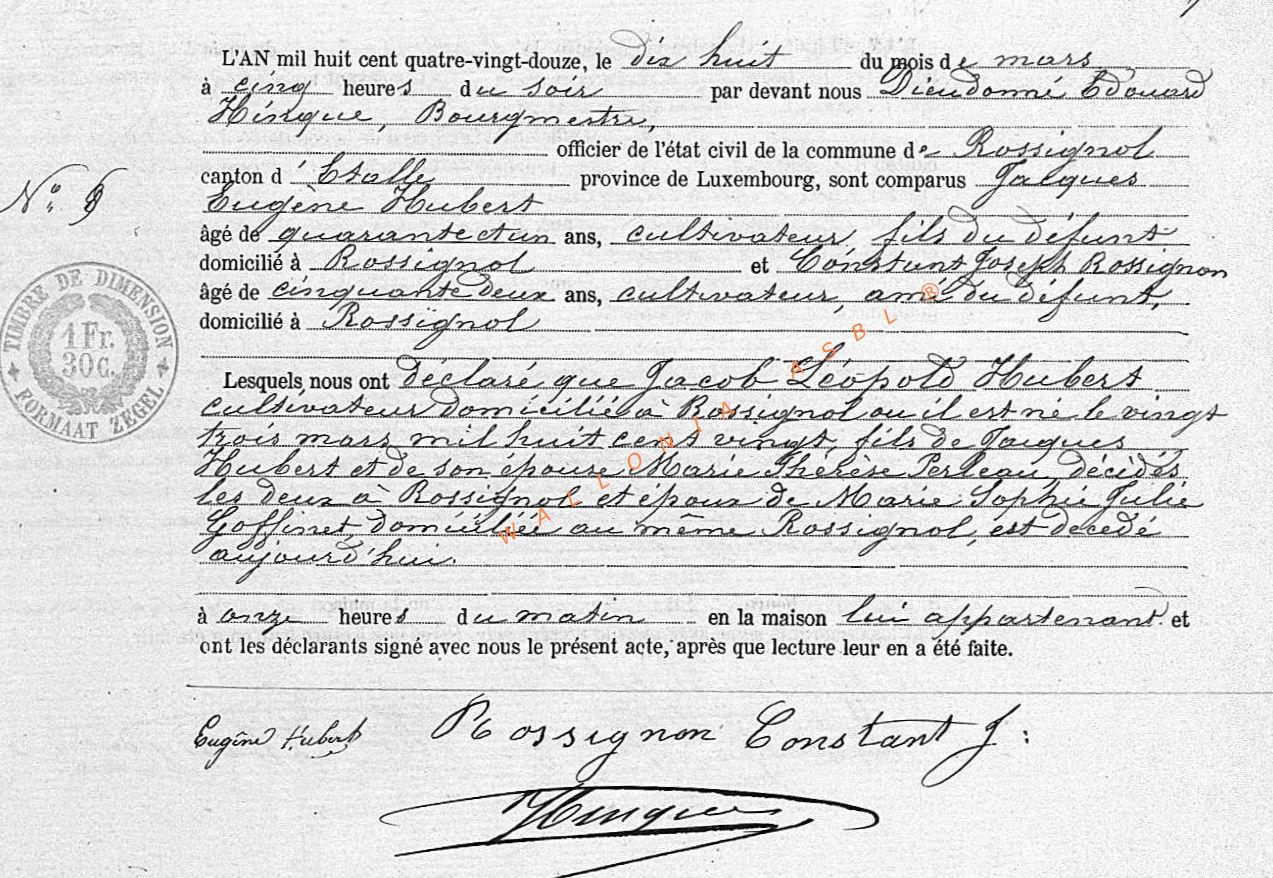 L'AN mil huit cent quatre-vingt-douze, le dix huit du mois de mars
à cinq heures du soir par devant nous Dieudonné Edouard
Hinque, Bourgmestre,
officier de l'état civil de la commune de Rossignol
canton d'Etalle province de Luxembourg, sont comparus Jacques
Eugène Hubert
N° 8
âgé de quarante et un ans, cultivateur, fils du défunt
domicilié à Rossignol et Constant Joseph Rossignon
âgé de cinquante deux ans, cultivateur, ami du défunt,
domicilié à Rossignol
TIMBRE DE DIMENSION
1 Fr.
30 c.
FORMAAT ZEGEL
Lesquels nous ont déclaré que Jacob Léopold Hubert
cultivateur domicilié à Rossignol ou il est né le vingt
trois mars mil huit cent vingt, fils de Jacques
Hubert et de son épouse Marie Thérèse Perleau, décédés
les deux à Rossignol et époux de Marie Sophie Julie
Goffinet, domiciliée au même Rossignol, est decédé
aujourd'hui.
à onze heures du matin en la maison lui appartenant et
ont les déclarants signé avec nous le présent acte, après que lecture leur en a été faite.
Eugène Hubert Rossignon Constant J:
Hinque
WALLONIA ASBL ®